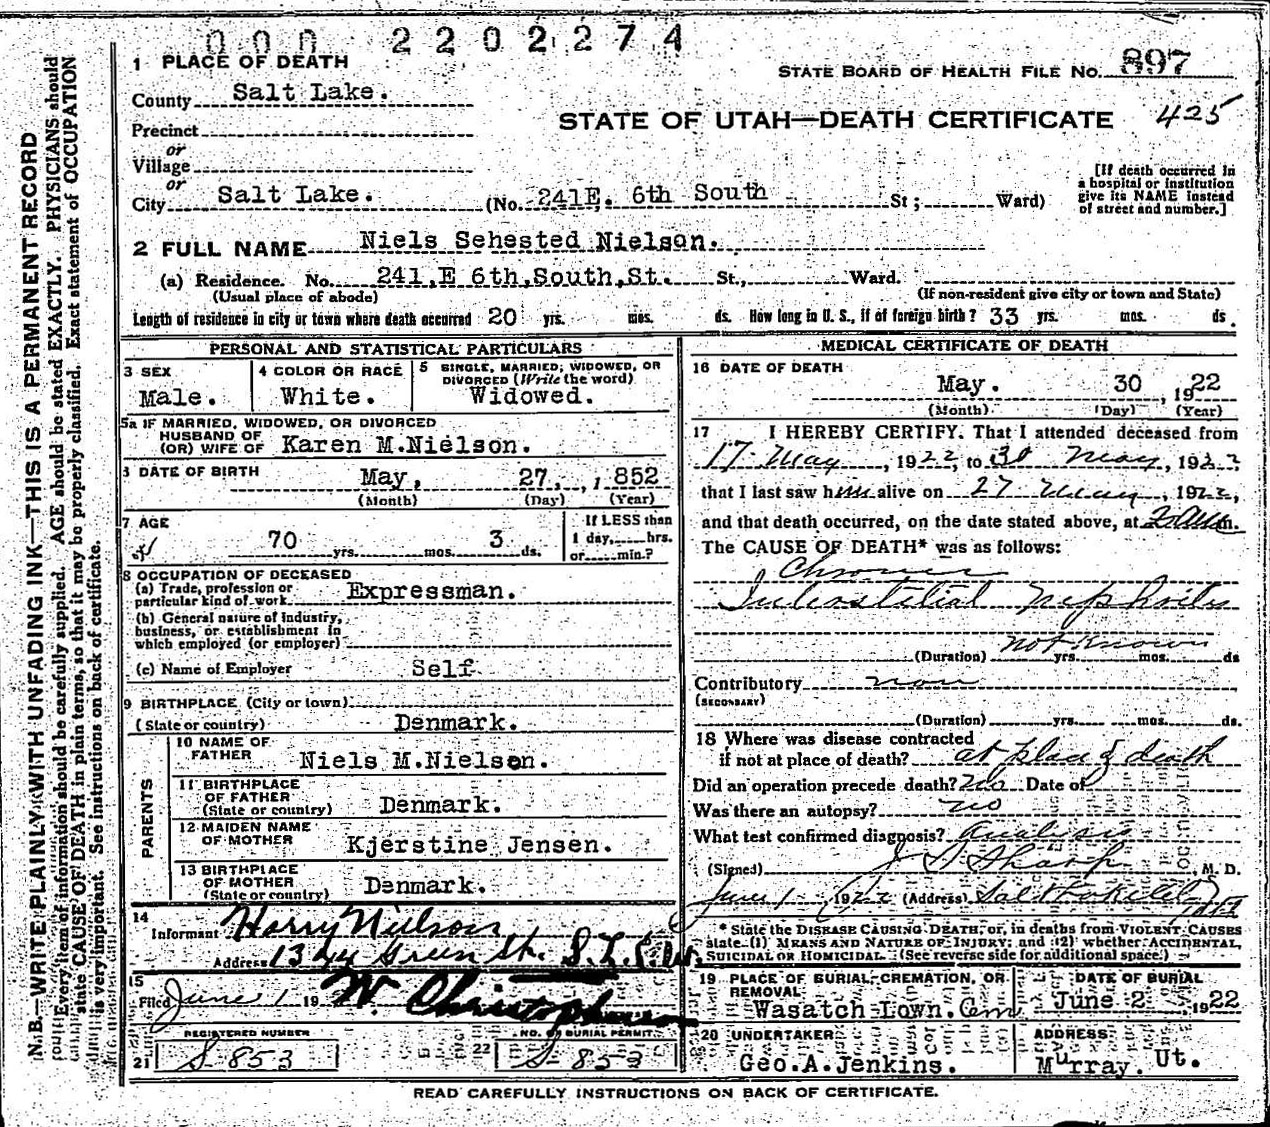 000 2202274
1 PLACE OF DEATH
STATE BOARD OF HEALTH FILE NO. 897
County Salt Lake.
STATE OF UTAH—DEATH CERTIFICATE 425
Precinct
or
Village
or
City Salt Lake. (No. 241E. 6th South St; Ward)
[If death occurred in
a hospital or institution
give its NAME instead
of street and number.]
2 FULL NAME Niels Sehested Nielson.
(a) Residence. No. 241,E 6th,South,St. St., Ward.
(Usual place of abode) (If non-resident give city or town and State)
Length of residence in city or town where death occurred 20 yrs. mos. ds. How long in U. S., if of foreign birth? 33 yrs. mos. ds.
PERSONAL AND STATISTICAL PARTICULARS
3 SEX Male.
4 COLOR OR RACE White.
5 SINGLE, MARRIED, WIDOWED, OR
DIVORCED (Write the word)
Widowed.
5a IF MARRIED, WIDOWED, OR DIVORCED
HUSBAND OF
(OR) WIFE OF Karen M.Nielson.
DATE OF BIRTH May, 27, 1852
(Month) (Day) (Year)
7 AGE
70 yrs. mos. 3 ds.
If LESS than
1 day, hrs.
or min.?
8 OCCUPATION OF DECEASED
(a) Trade, profession or
particular kind of work Expressman.
(b) General nature of industry,
business, or establishment in
which employed (or employer)
(c) Name of Employer Self
9 BIRTHPLACE (City or town)
(State or country) Denmark.
PARENTS
10 NAME OF
FATHER Niels M.Nielson.
11 BIRTHPLACE
OF FATHER
(State or country) Denmark.
12 MAIDEN NAME
OF MOTHER Kjerstine Jensen.
13 BIRTHPLACE
OF MOTHER
(State or country) Denmark.
14
Informant Harry Nielson
Address 1344 Green St. S.L.C.Ut.
15
Filed June 1 19 W Christopherson
REGISTERED NUMBER
21 S-853
NO. ON BURIAL PERMIT
22 S-853
MEDICAL CERTIFICATE OF DEATH
16 DATE OF DEATH
May. 30, 1922
(Month) (Day) (Year)
17 I HEREBY CERTIFY. That I attended deceased from
17 May, 1922, to 30 May, 1922,
that I last saw him alive on 27 May, 1922,
and that death occurred, on the date stated above, at 2 A m.
The CAUSE OF DEATH* was as follows:
Chronic
Interstitial Nephritis
(Duration) not known yrs. mos. ds
Contributory non
(SECONDARY)
(Duration) yrs. mos. ds.
18 Where was disease contracted
if not at place of death? at place of death
Did an operation precede death? No Date of
Was there an autopsy? no
What test confirmed diagnosis? Analisis
(Signed) J S Sharp, M. D.
June 1 1922 (Address) Salt Lake City Utah
* State the DISEASE CAUSING DEATH, or, in deaths from VIOLENT CAUSES
state (1) MEANS AND NATURE OF INJURY; and (2) whether ACCIDENTAL,
SUICIDAL OR HOMICIDAL. (See reverse side for additional space.)
19 PLACE OF BURIAL, CREMATION, OR
REMOVAL
Wasatch Lown. Cem
DATE OF BURIAL
June 2, 1922
20 UNDERTAKER
Geo.A.Jenkins.
ADDRESS
Murray. Ut.
READ CAREFULLY INSTRUCTIONS ON BACK OF CERTIFICATE.
N. B.—WRITE PLAINLY, WITH UNFADING INK—THIS IS A PERMANENT RECORD
Every item of information should be carefully supplied. AGE should be stated EXACTLY. PHYSICIANS should
state CAUSE OF DEATH in plain terms, so that it may be properly classified. Exact statement of OCCUPATION
is very important. See instructions on back of certificate.